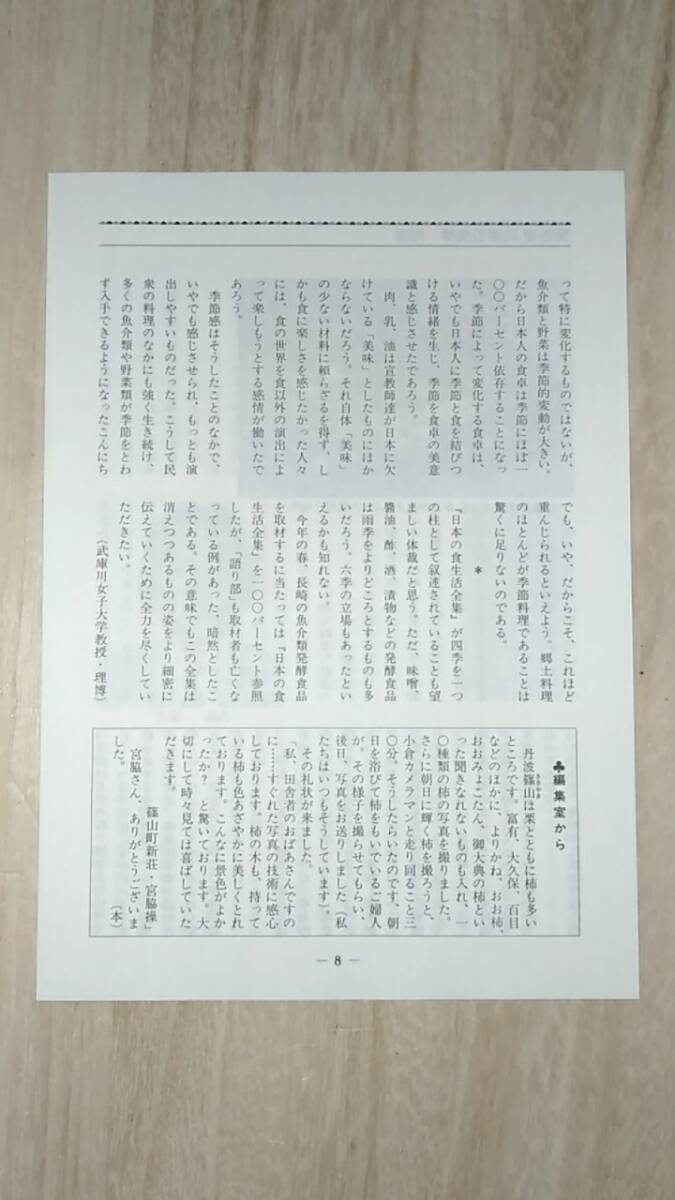 って特に変化するものではないが、
魚介類と野菜は季節的変動が大きい。
だから日本人の食卓は季節にほぼ一
〇〇パーセント依存することになっ
た。季節によって変化する食卓は、
いやでも日本人に季節と食を結びつ
ける情緒を生じ、季節を食卓の美意
識と感じさせたであろう。
肉、乳、油は宣教師達が日本に欠
けている「美味」としたものにほか
ならないだろう。それ自体「美味」
の少ない材料に頼らざるを得ず、し
かも食に楽しさを感じたかった人々
には、食の世界を食以外の演出によ
って楽しもうとする感情が働いたで
あろう。
季節感はそうしたことのなかで、
いやでも感じさせられ、もっとも演
出しやすいものだった。こうして民
衆の料理のなかにも強く生き続け、
多くの魚介類や野菜類が季節をとわ
ず入手できるようになったこんにち
でも、いや、だからこそ、これほど
重んじられるといえよう。郷土料理
のほとんどが季節料理であることは
驚くに足りないのである。
*
『日本の食生活全集』が四季を一つ
の柱として叙述されていることも望
ましい体裁だと思う。ただ、味噌、
醬油、酢、酒、漬物などの発酵食品
は雨季をよりどころとするものも多
いだろう。六季の立場もあったとい
えるかも知れない。
今年の春、長崎の魚介類発酵食品
を取材するに当たっては『日本の食
生活全集』を一〇〇パーセント参照
したが、「語り部」も取材者も亡くな
っている例があった、暗然としたこ
とである。その意味でもこの全集は
消えつつあるものの姿をより細密に
伝えていくために全力を尽くしてい
ただきたい。
(武庫川女子大学教授・理博)
♣編集室から
丹波篠山は栗とともに柿も多い
ところです。富有、大久保、百目
などのほかに、よりかね、おお柿、
おおみょこたん、御大典の柿とい
った聞きなれないものも入れ、一
〇種類の柿の写真を撮りました。
さらに朝日に輝く柿を撮ろうと、
小倉カメラマンと走り回ること三
〇分。そうしたらいたのです、朝
日を浴びて柿をもいでいるご婦人
が。その様子を撮らせてもらい、
後日、写真をお送りしました(私
たちはいつもそうしています)。
その礼状が来ました。
「私、田舎者のおばあさんですの
に……すぐれた写真の技術に感心
しております。柿の木も、持って
いる柿も色あざやかに美しくとれ
ております。こんなに景色がよか
ったか?と驚いております。大
切にして時々見ては喜ばしていた
だきます。
篠山町新荘・宮脇操」
宮脇さん、ありがとうございま
した。
(本)
— 8 —